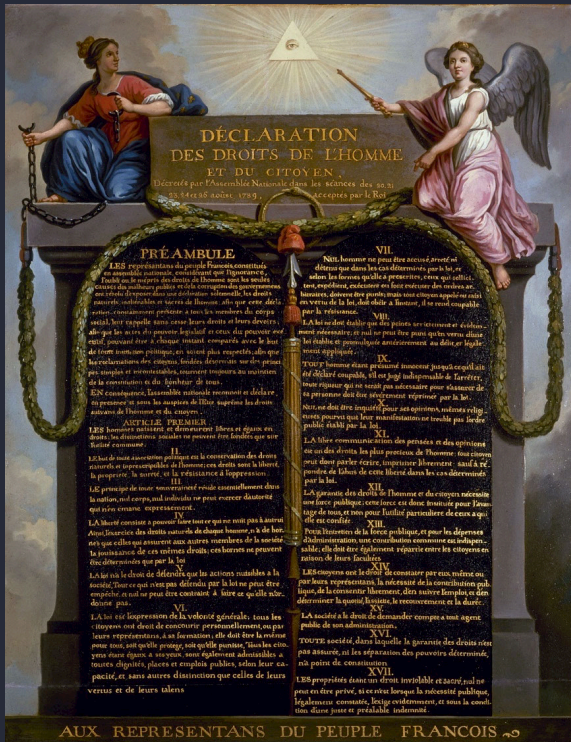 DÉCLARATION
DES DROITS DE L'HOMME
ET DU CITOYEN,
Décretés par l'Assemblée Nationale dans les séances des 20, 21
23, 24 et 26 août 1789, acceptés par le Roi
PRÉAMBULE
LES représentans du peuple François, constitués
en assemblée nationale, considérant que l'ignorance,
l'oubli ou le mépris des droits de l'homme sont les seules
causes des malheurs publics et de la corruption des gouvernemens
ont résolu d'exposer dans une déclaration solemnelle, les droits
naturels, inaliénables et sacrés de l'homme; afin que cette décla
ration, constamment présente à tous les membres du corps
social, leur rappelle sans cesse leurs droits et leurs devoirs;
afin que les actes du pouvoir législatif et ceux du pouvoir exé
cutif, pouvant être à chaque instant comparés avec le but
de toute institution politique, en soient plus respectés; afin que
les réclamations des citoyens, fondées désormais sur des princi
pes simples et incontestables, tournent toujours au maintien
de la constitution et du bonheur de tous.
EN conséquence, l'assemblée nationale reconnoît et déclare,
en présence et sous les auspices de l'Etre suprême les droits
suivans de l'homme et du citoyen.
ARTICLE PREMIER.
LES hommes naissent et demeurent libres et égaux en
droits; les distinctions sociales ne peuvent être fondées que sur
l'utilité commune.
II.
LE but de toute association politique est la conservation des droits
naturels et imprescriptibles de l'homme; ces droits sont la liberté,
la propriété, la sureté, et la résistance à l'oppression.
III.
LE principe de toute souveraineté réside essentiellement dans
la nation, nul corps, nul individu ne peut exercer d'autorité
qui n'en émane expressément.
IV.
LA liberté consiste à pouvoir faire tout ce qui ne nuit pas à autrui
Ainsi, l'exercice des droits naturels de chaque homme, n'a de bor-
nes que celles qui assurent aux autres membres de la société
la jouissance de ces mêmes droits; ces bornes ne peuvent
être déterminées que par la loi
V.
LA loi n'a le droit de défendre que les actions nuisibles à la
société. Tout ce qui n'est pas défendu par la loi ne peut être
empêché, et nul ne peut être contraint à faire ce qu'elle n'or-
donne pas.
VI.
LA loi est l'expression de la volonté générale; tous les
citoyens ont droit de concourir personnellement, ou par
leurs représentans, à sa formation; elle doit être la même
pour tous, soit qu'elle protège, soit qu'elle punisse. Tous les cito-
yens étant égaux à ses yeux, sont également admissibles à
toutes dignités, places et emplois publics, selon leur ca-
pacité, et sans autres distinction que celles de leurs
vertus et de leurs talens
VII.
NUL homme ne peut être accusé, arreté ni
détenu que dans les cas déterminés par la loi, et
selon les formes qu'elle a prescrites, ceux qui sollici-
tent, expédient, exécutent ou font exécuter des ordres ar-
bitraires, doivent être punis; mais tout citoyen appelé ou saisi
en vertu de la loi, doit obéir à l'instant, il se rend coupable
par la résistance.
VIII.
LA loi ne doit établir que des peines strictement et évidem-
ment nécessaires, et nul ne peut être puni qu'en vertu d'une
loi établie et promulguée antérieurement au délit, et légale
ment appliquée.
IX.
TOUT homme étant présumé innocent jusqu'à ce qu'il ait
été déclaré coupable, s'il est jugé indispensable de l'arrêter,
toute rigueur qui ne serait pas nécessaire pour s'assurer de
sa personne doit être sévèrement réprimée par la loi.
X.
NUL ne doit être inquiété pour ses opinions, mêmes religi-
euses pourvu que leur manifestation ne trouble pas l'ordre
public établi par la loi.
XI.
LA libre communication des pensées et des opinions
est un des droits les plus précieux de l'homme; tout citoyen
peut donc parler, écrire, imprimer librement: sauf à ré-
pondre de l'abus de cette liberté dans les cas déterminés
par la loi.
XII.
LA garantie des droits de l'homme et du citoyen nécessite
une force publique; cette force est donc instituée pour l'avan-
tage de tous, et non pour l'utilité particulière de ceux à qui
elle est confiée.
XIII.
Pour l'entretien de la force publique, et pour les dépenses
d'administration, une contribution commune est indispen-
sable; elle doit être également répartie entre les citoyens en
raison de leurs facultées.
XIV.
LES citoyens ont le droit de constater par eux même ou
par leurs représentans, la nécessité de la contribution pub-
lique, de la consentir librement, d'en suivre l'emploi, et d'en
déterminer la quotité, l'assiette, le recouvrement et la durée.
XV.
LA société a le droit de demander compte à tout agent
public de son administration.
XVI.
TOUTE société, dans laquelle la garantie des droits n'est
pas assurée, ni la séparation des pouvoirs déterminée,
n'a point de constitution
XVII.
LES propriétés étant un droit inviolable et sacré, nul ne
peut en être privé, si ce n'est lorsque la nécessité publique,
légalement constatée, l'exige evidemment, et sous la condi-
tion d'une juste et préalable indemnité.
AUX REPRESENTANS DU PEUPLE FRANCOIS